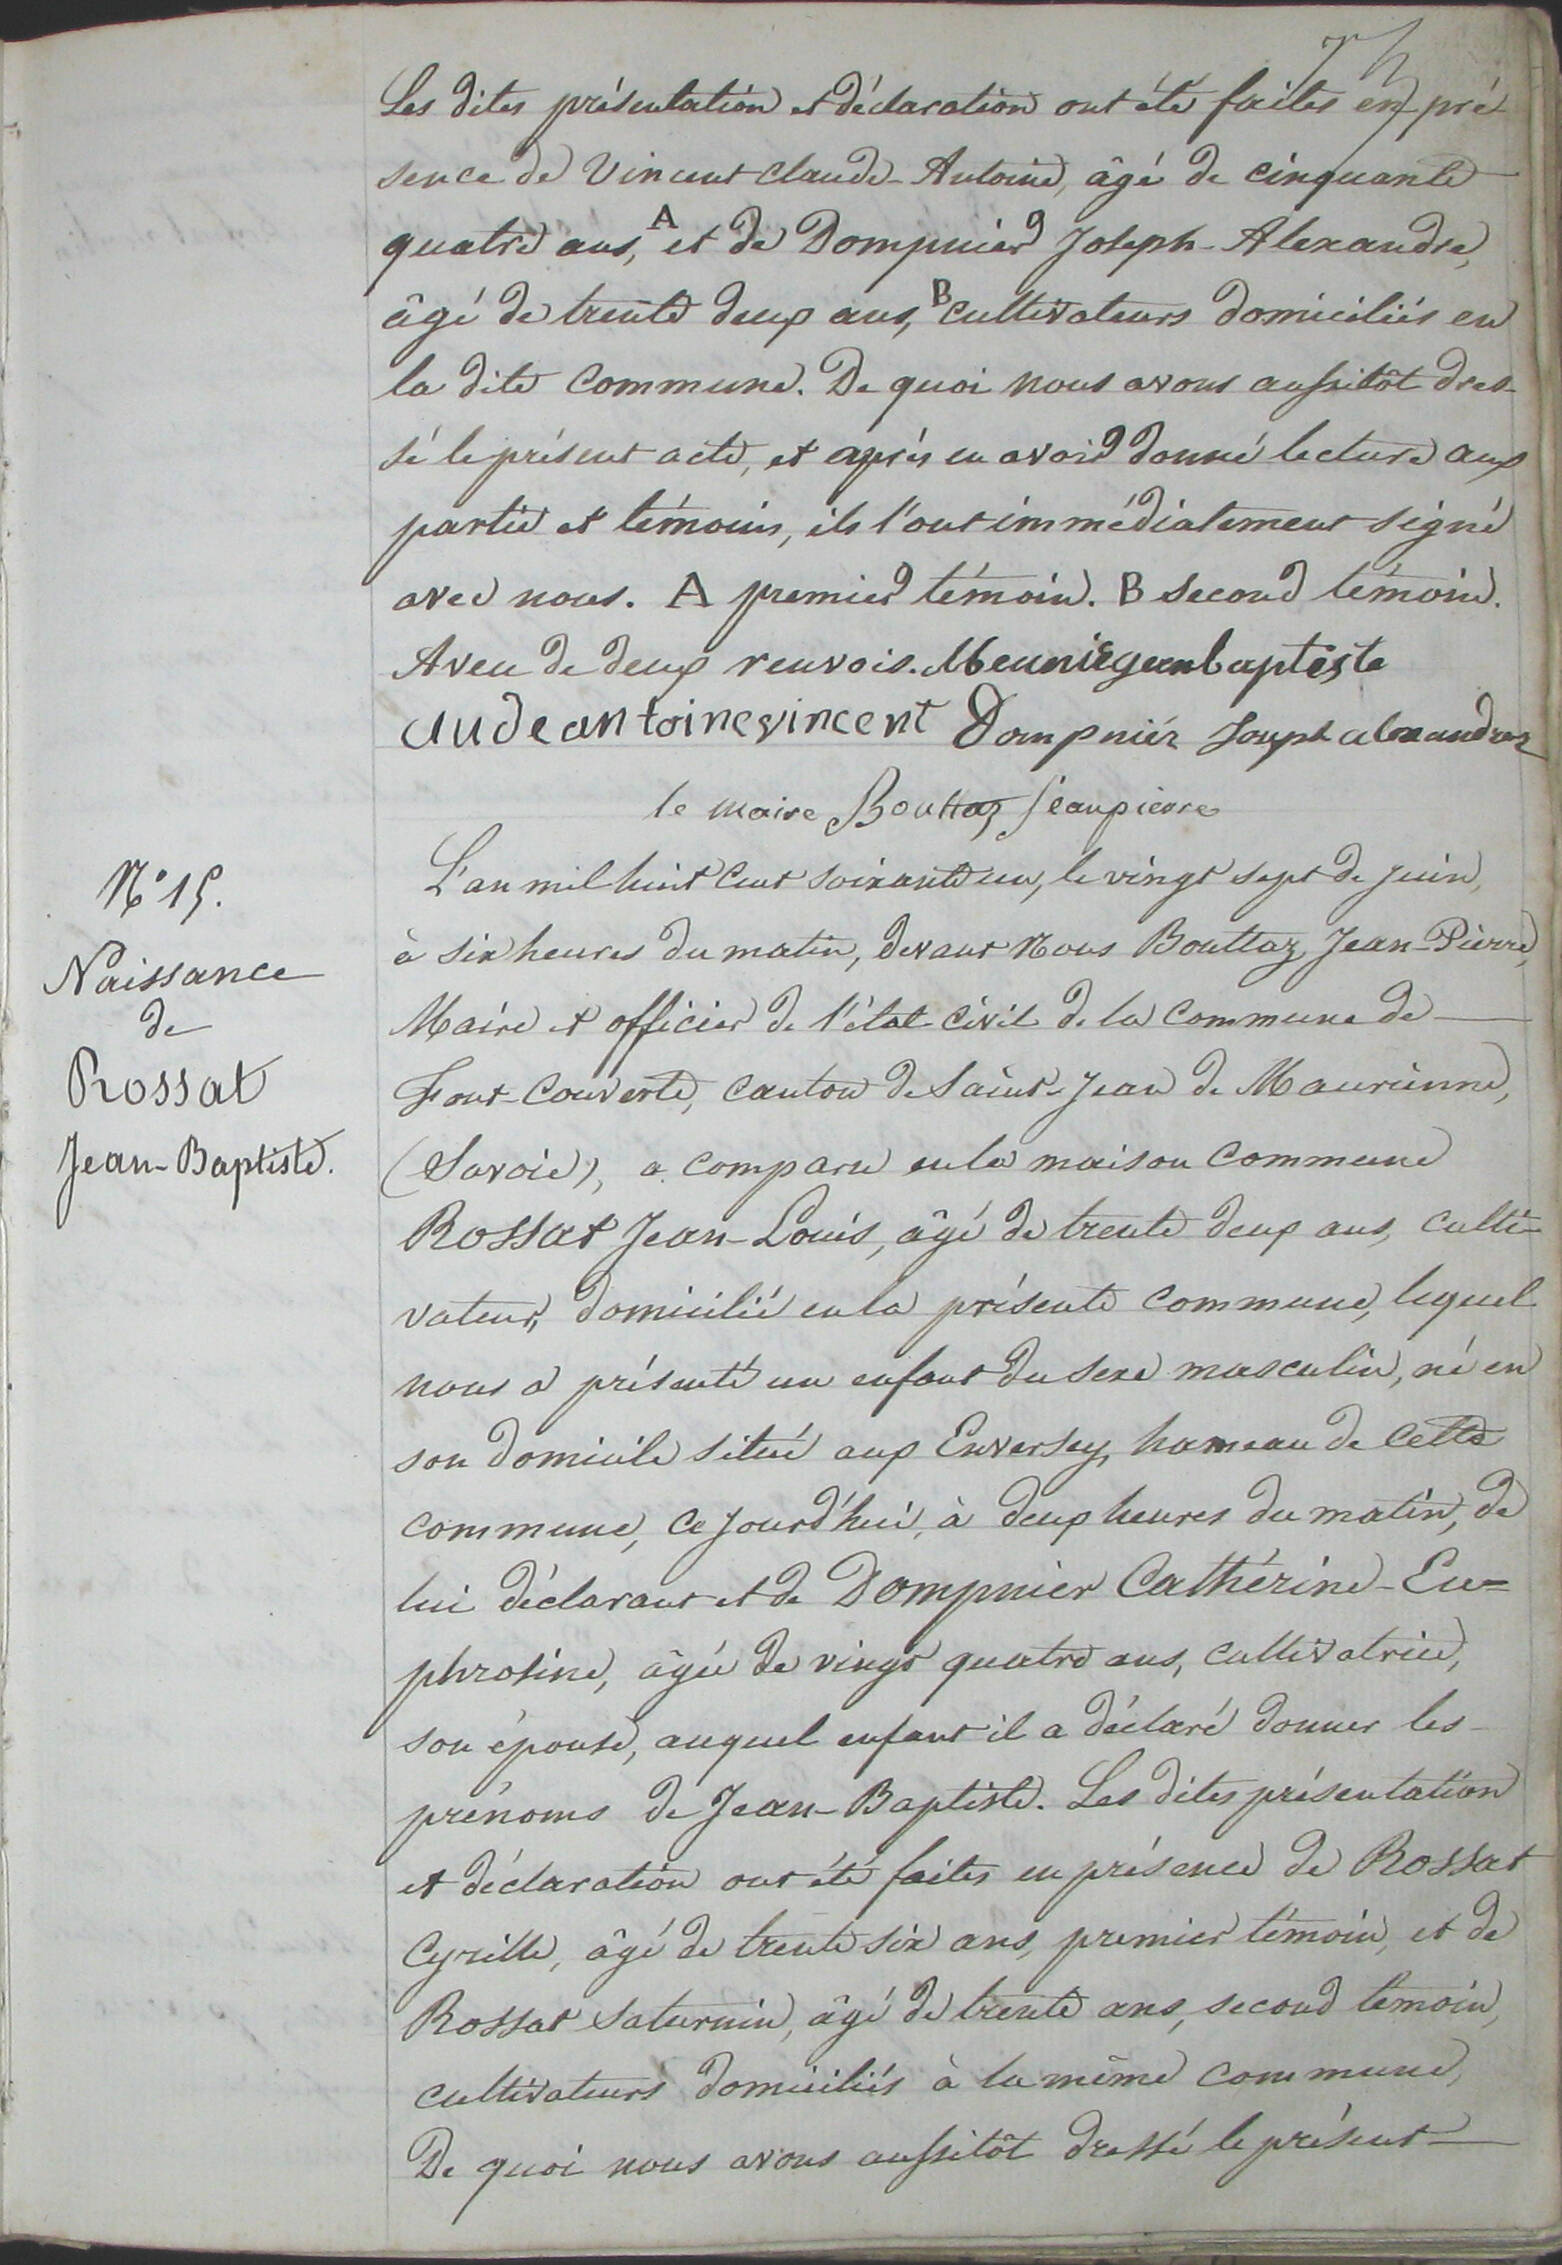 Les dites présentation et déclaration ont été faites en pré-
sence de Vincent Claude-Antoine, âgé de cinquante
quatre ans, A et de Dompnier Joseph-Alexandre,
âgé de trente deux ans, B cultivateurs domiciliés en
la dite Commune. De quoi nous avons aussitôt dres-
sé le présent acte, et après en avoir donné lecture aux
partie et témoins, ils l'ont immédiatement signé
avec nous. A premier témoin. B second témoin.
Aveu de deux renvois. Meunié jeanbaptiste
audeantoinevincent Dompnier Joseph alexandre
le maire Bouttaz jeanpierre
N° 15.
Naissance
de
Rossat
Jean-Baptiste.
L'an mil huit cent soixante un, le vingt sept de juin,
à six heures du matin, devant Nous Bouttaz Jean-Pierre,
Maire et officier de l'état civil de la commune de
Font-Couverte, canton de Saint-Jean de Maurienne,
(Savoie), a comparu en la maison commune
Rossat Jean-Louis, âgé de trente deux ans, culti-
vateur, domicilié en la présente commune, lequel
nous a présenté un enfant du sexe masculin, né en
son domicile situé aux Enversey, hameau de cette
commune, ce jourd'hui, à deux heures du matin, de
lui déclarant et de Dompnier Cathérine-Eu=
phrosine, âgée de vingt quatre ans, cultivatrice,
son épouse, auquel enfant il a déclaré donner les
prénoms de Jean-Baptiste. Les dites présentation
et déclaration ont été faites en présence de Rossat
Cyrille, âgé de trente six ans, premier témoin, et de
Rossat Saturnin, âgé de trente ans, second témoin,
cultivateurs domiciliés à la même commune,
De quoi nous avons aussitôt dressé le présent